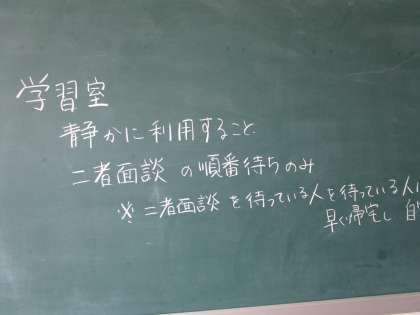 学習室
静かに利用すること
二者面談の順番待ちのみ
※二者面談を待っている人を待っている人
早く帰宅し 自